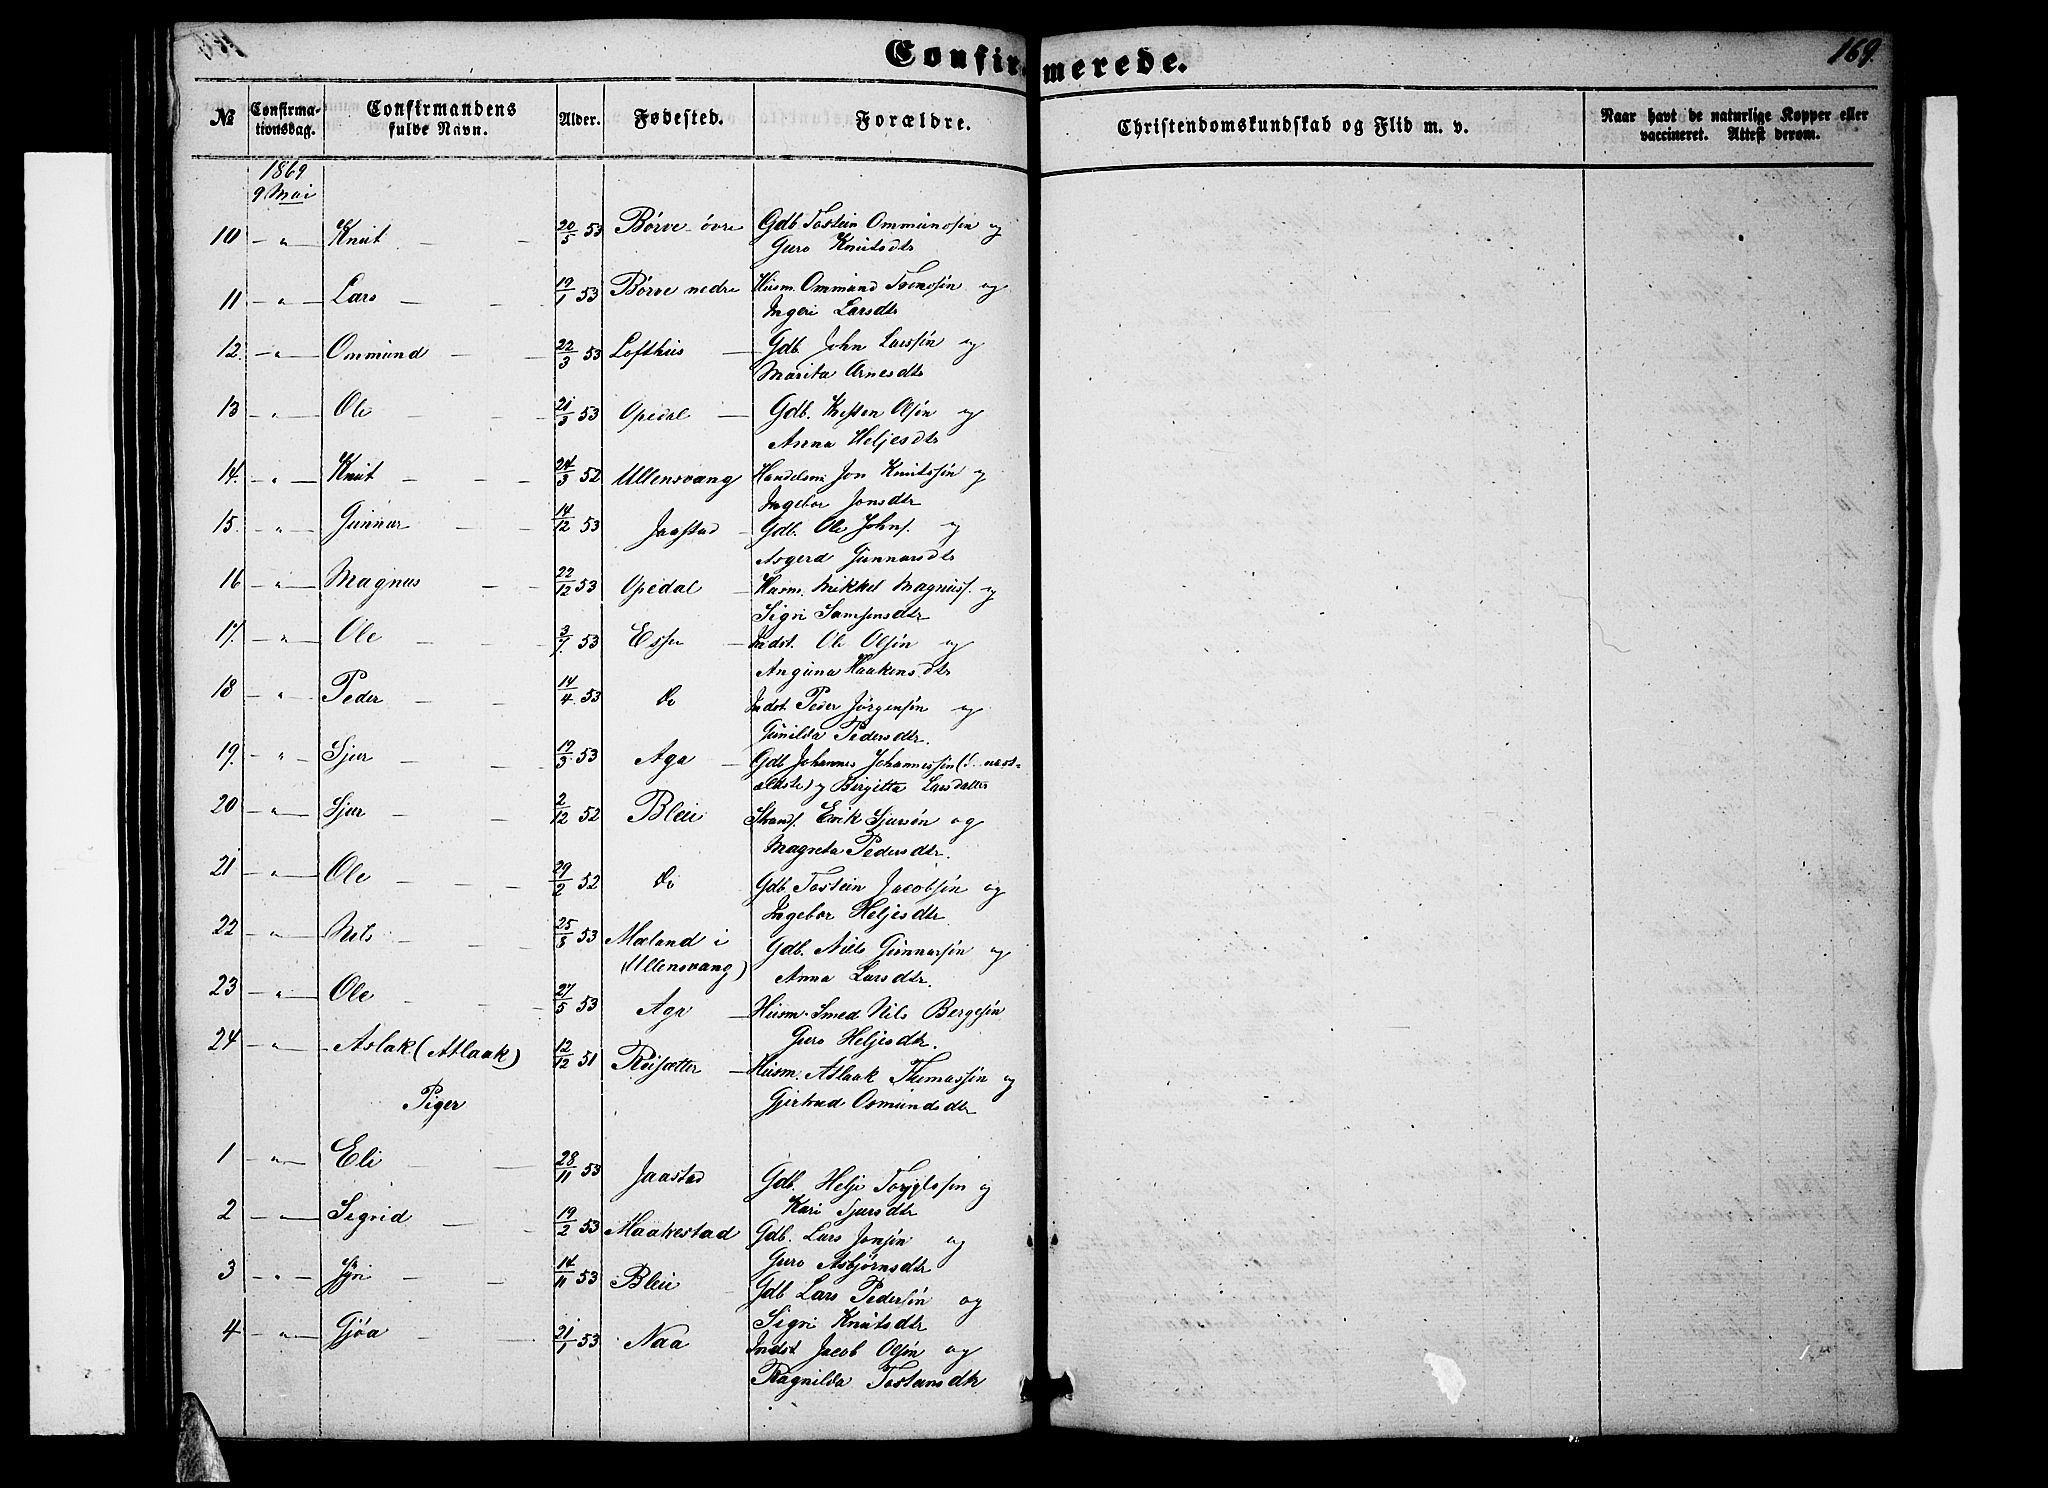 Confirmerede.
169.
№ Confirma-tionsdag. Confirmandens fulde Navn. Alder. Fødested. Forældre. Christendomskundskab og Flid m. v. Naar havt de naturlige Kopper eller vaccineret. Attest derom.
1869
9 Mai
10 — " — Knut — — 20/5 53 Børve øvre Gdb. Tostein Ommundsøn og
Guro Knutsdtr
11 — " — Lars — — 19/1 53 Børve nedre Husm. Ommund Svensøn og
Ingeri Larsdtr
12. — " — Ommund — — 22/3 53 Lofthus — Gdb. John Larssøn og
Marita Arnesdtr
13 — " — Ole — — 21/3 53 Opedal — Gdb. Kristen Olsøn og
Anna Heljesdtr
14. — " — Knut — — 24/3 52 Ullensvang Handelsm. Jon Knutssøn og
Ingebor Jonsdtr
15. — " — Gunnar — — 14/12 53 Jaastad — Gdb. Ole Johns. og
Asgerd Gunnarsdtr
16 — " — Magnus — 22/12 53 Opedal — Husm. Mikkel Magnuss. og
Sigri Samsonsdtr
17. — " — Ole — — 3/7 53 Espe — Indst. Ole Olsøn og
Anguna Haakonsdtr
18 — " — Peder — — 14/4 53 Do Indst. Peder Jørgensøn og
Gunilda Pedersdtr.
19. — " — Sjur — — 19/3 53 Aga — Gdb Johannes Johannessøn (næst-
ældste) og Birgitta Larsdatter
20 — " — Sjur — — 2/12 52 Bleie Strands. Erik Sjursøn og
Magreta Pedersdtr.
21 — " — Ole — — — 29/2 52 Do Gdb. Tostein Jacobsøn og
Ingebor Heljesdtr
22 — " — Nils — — 25/3 53 Mæland i
(Ullensvang) Gdb. Niels Gunnarsøn og
Anna Larsdtr.
23 — " — Ole — — 27/5 53 Aga — Husm. Smed Nils Bergesøn
Guro Heljesdtr.
24 — " — Aslak (Atlaak) 12/12 51 Røisætter — Husm. Aslaak Thomassøn og
Gjertrud Osmundsdtr
Piger
1 — " — Eli — — 28/11 53 Jaastad Gdb. Helje Torgilssøn og
Kari Sjursdtr
2 — " — Sigrid — — 19/2 53 Maakestad Gdb. Lars Jonsøn og
Guro Asbjørnsdtr
3 — " — Syri — — 14/11 53 Bleie Gdb Lars Pedersøn og
Sigri Knutsdtr
4 — " — Gjøa — — 21/1 53 Naa Indst. Jacob Olsøn og
Ragnilda Tosteinsdtr